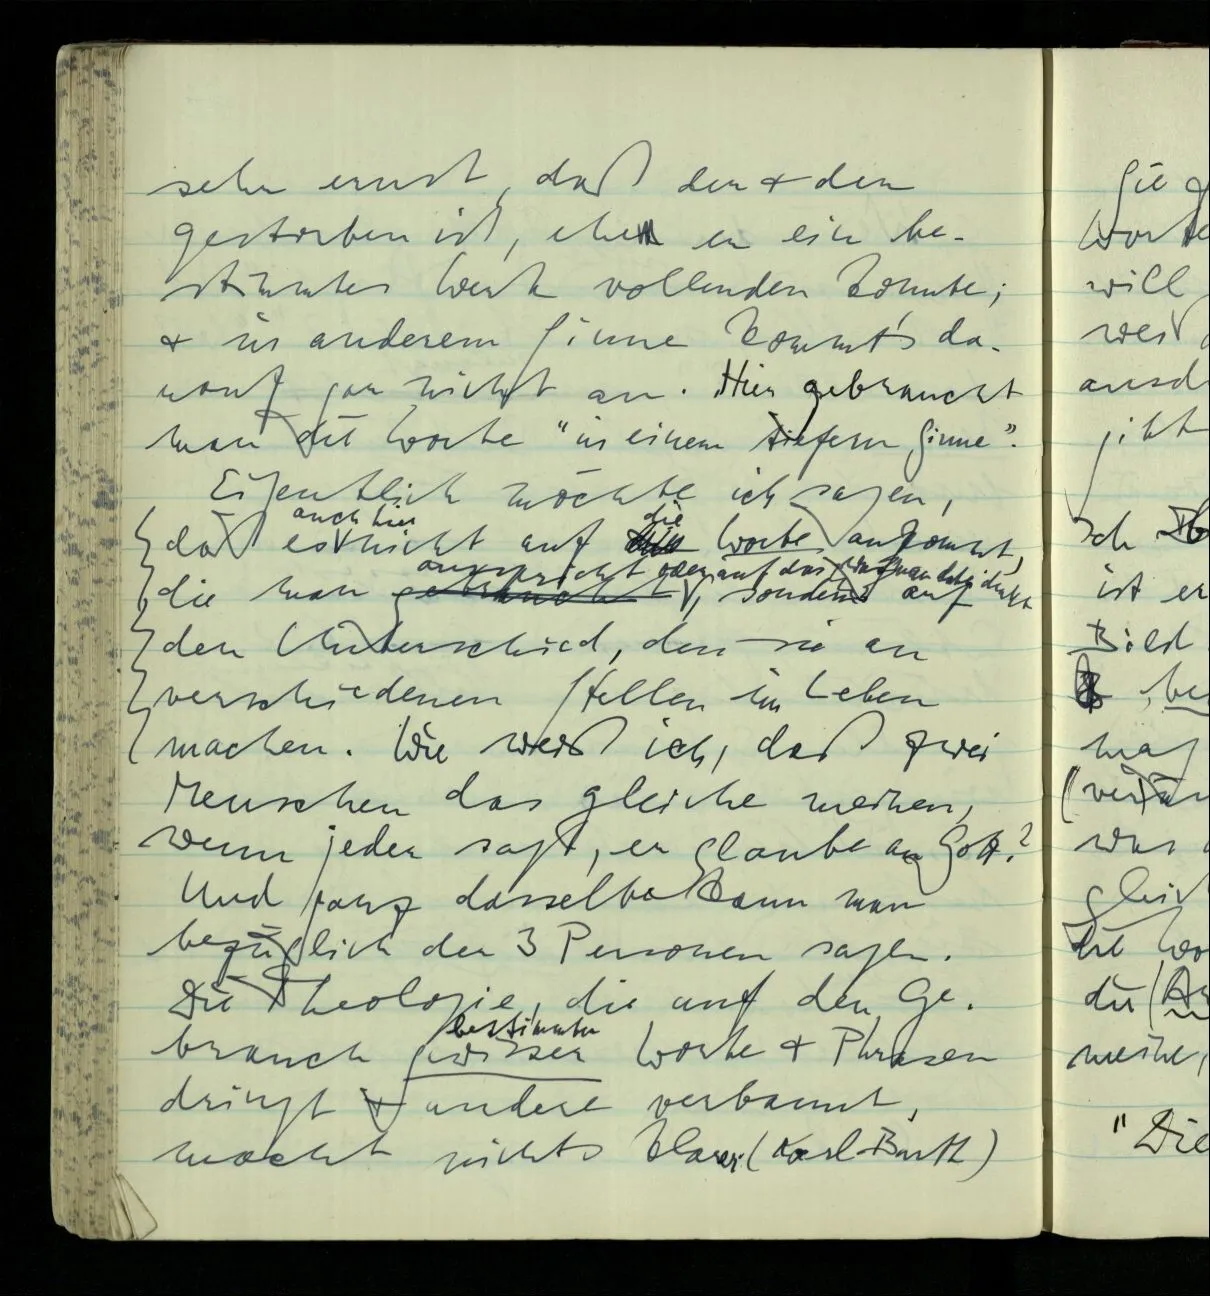 sehr ernst, daß der & der
gestorben ist, ehe er ein be-
stimmtes Werk vollenden konnte;
& in anderem Sinne kommt's da-
rauf gar nicht an. Hier gebraucht
man die Worte "in einem tiefern Sinne".
Eigentlich möchte ich sagen,
daß es auch hier nicht auf die Worte ankommt,
die man ausspricht oder auf das, was man dabei denkt, sondern auf
den Unterschied, den sie an
verschiedenen Stellen im Leben
machen. Wie weiß ich, daß zwei
Menschen das gleiche meinen,
wenn jeder sagt, er glaube an Gott?
Und ganz dasselbe kann man
bezüglich der 3 Personen sagen.
Die Theologie, die auf den Ge-
brauch gewisser bestimmter Worte & Phrasen
dringt & andere verbannt,
macht nichts klarer. (Karl Barth)
Sie
Worte
will
weiß
gibt
Ich
ist er
Bild
mag
was
die
meine,
"Die